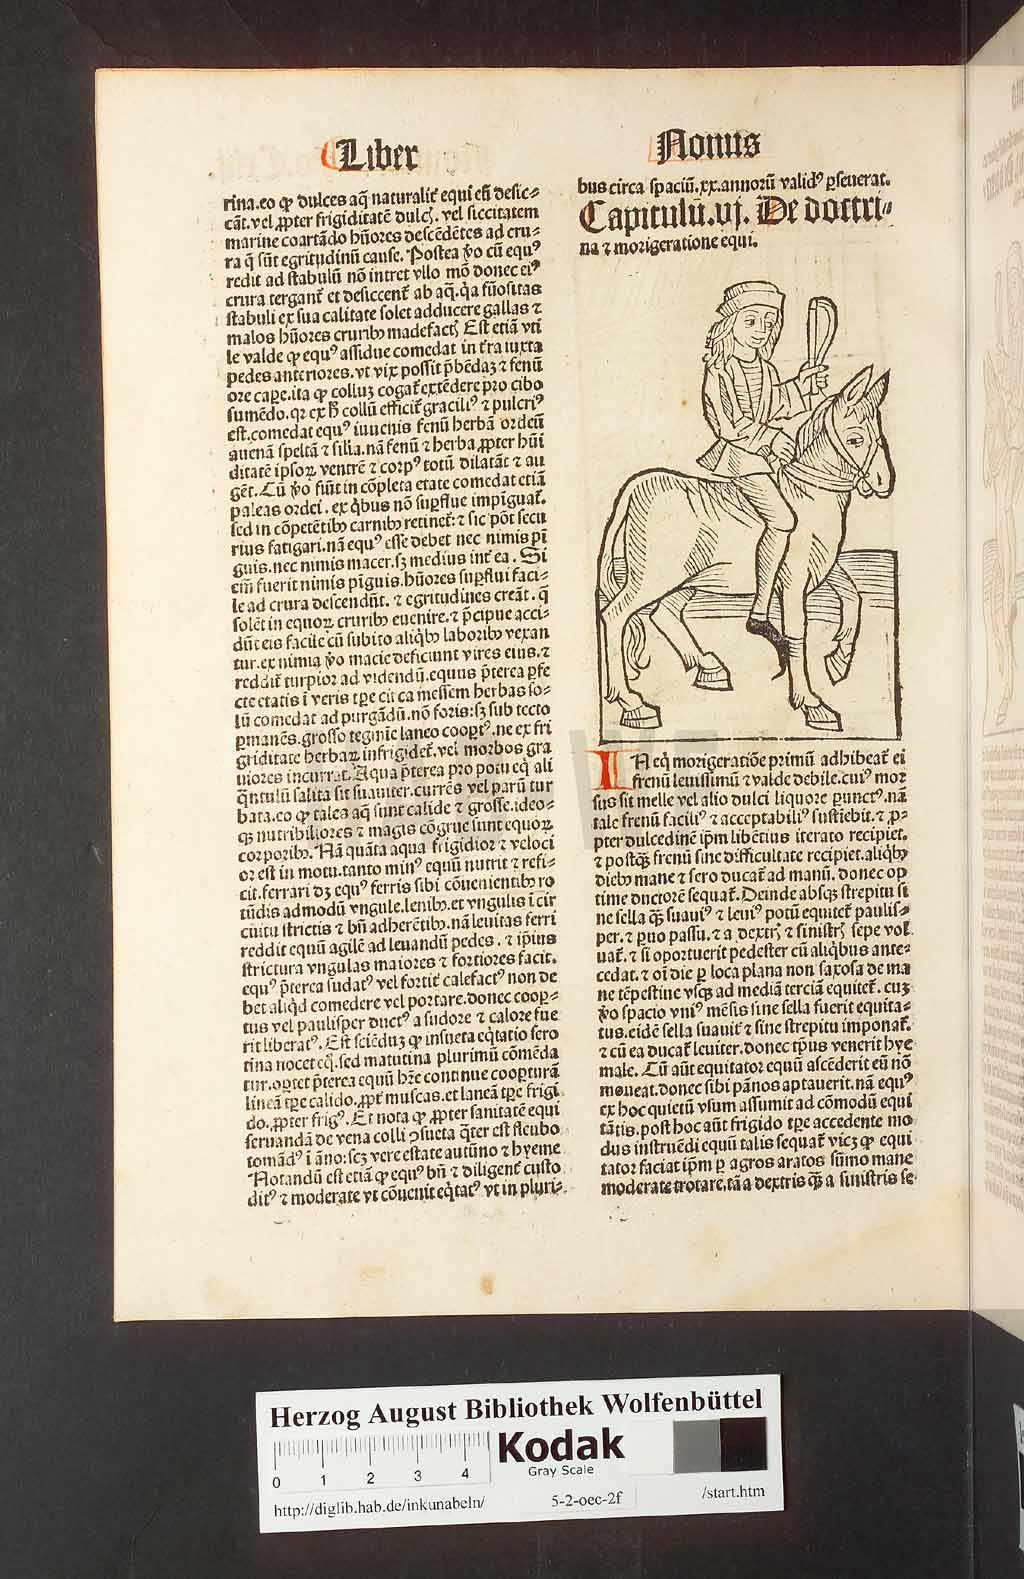 Liber
rina.eo ꝙ dulces aq̃ naturalit̃ equi eũ desic⸗
cãt.vel ꝓpter frigiditatẽ dulcꝭ.vel siccitatem
marine coartãdo hũores descẽdẽtes ad cru⸗
ra q̃ sũt egritudinũ cause. Postea ꝟo cũ equꝰ
redit ad stabulũ nõ intret vllo mõ donec eiꝰ
crura tergant̃ et desiccent̃ ab aq̃.q̃a fũositas
stabuli ex sua calitate solet adducere gallas ⁊
malos hũores cruribꝰ madefactꝭ Est etiã vti
le valde ꝙ equꝰ assidue comedat in t̃ra iuxta
pedes anteriores.vt vix possit p̃bẽdaꝫ ⁊ fenũ
ore caꝑe.ita ꝙ colluꝫ cogat̃ extẽdere pro cibo
sumẽdo.qꝛ ex ħ collũ efficit̃ graciliꝰ ⁊ pulcriꝰ
est.comedat equꝰ iuuenis fenũ herbã ordeũ
auenã speltã ⁊ silia.nã fenũ ⁊ herba ꝓpter hũi
ditatẽ ipsoꝝ ventrẽ ⁊ corpꝰ totũ dilatãt ⁊ au
gẽt.Cũ ꝟo fiũt in cõpleta etate comedat etiã
paleas ordei.ex q̃bus nõ suꝑflue impiguat̃.
sed in cõpetẽtibꝰ carnibꝰ retinet̃.⁊ sic põt secu
rius fatigari.nã equꝰ esse debet nec nimis pĩ
guis.nec nimis macer.sꝫ medius int̃ ea. Si
eĩm fuerit nimis pĩguis.hũores suꝑflui faci⸗
le ad crura descendũt.⁊ egritudines creãt.q̃
solẽt in equoꝝ cruribꝰ euenire.⁊ p̃cipue acci⸗
dũt eis facile cũ subito aliq̃bꝰ laboribꝰ vexan
tur.ex nimia ꝟo macie deficiunt vires eius.⁊
reddit̃ turpior ad videndũ.equus p̃terea ꝑfe
cte etatis ĩ veris tꝑe circa messem herbas so⸗
lũ comedat ad purgãdũ.nõ foris:sꝫ sub tecto
ꝑmanẽs.grosso tegmĩe laneo cooꝑtꝰ.ne ex fri
griditate herbaꝝ infrigidet̃.vel morbos gra
uiores incurrat.Aqua p̃terea pro potu eq̃ ali
q̃ntulũ salita sit suauiter.currẽs vel parũ tur
bata.eo ꝙ tales aq̃ sunt calide ⁊ grosse.ideo⸗
qꝫ nutribiliores ⁊ magis cõgrue sunt equoꝝ
corporibꝰ. Nã quãta aqua frigidior ⁊ veloci
or est in motu.tanto minꝰ equũ nutrit ⁊ refi⸗
cit.ferrari dꝫ equꝰ ferris sibi cõuenientibꝰ ro
tũdis admodũ vngule.lenibꝰ.et vngulis ĩ cir
cuitu strictis ⁊ bñ adherẽtibꝰ.nã leuitas ferri
reddit equũ agilẽ ad leuandũ pedes.⁊ ip̃ius
strictura vngulas maiores ⁊ fortiores facit.
equꝰ p̃terea sudatꝰ vel fortit̃ calefactꝰ non de
bet aliq̃d comedere vel portare.donec cooꝑ⸗
tus vel paulisper ductꝰ a sudore ⁊ calore fue
rit liberatꝰ. Est sciẽduꝫ ꝙ insueta eq̃tatio sero
tina nocet eq̃.sed matutina plurimũ cõmẽda
tur.oꝑtet p̃terea equũ hr̃e continue cooꝑturã
lineã tꝑe calido.ꝓpt̃ muscas.et laneã tꝑe frigi
do.ꝓpter frigꝰ. Et nota ꝙ ꝓpter sanitatẽ equi
seruandã de vena colli ꝯsueta q̃ter est fleubo
tomãdꝰ ĩ ãno:scꝫ vere estate autũno ⁊ hyeme
Notandũ est etiã ꝙ equꝰ bñ ⁊ diligent̃ custo
ditꝰ ⁊ moderate vt cõuenit eq̃tatꝰ vt in pluri⸗
Nonus
bus circa spaciũ.xx.annorũ validꝰ ꝑseuerat.
Capitulũ.vj. De doctri⸗
na ⁊ morigeratione equi.
IN eq̃ morigeratiõe primũ adhibeat̃ ei
frenũ leuissimũ ⁊ valde debile.cuiꝰ mor
sus sit melle vel alio dulci liquore ꝑunctꝰ.nã
tale frenũ faciliꝰ ⁊ acceptabiliꝰ sustiebit.⁊ ꝓ⸗
pter dulcedinẽ ip̃m libẽtius iterato recipiet.
⁊ postq̃ꝫ frenũ sine difficultate recipiet.aliq̃bꝰ
diebꝰ mane ⁊ sero ducat̃ ad manũ.donec op
time ductorẽ sequat̃.Deinde absqꝫ strepitu si
ne sella q̃ꝫ suauiꝰ ⁊ leuiꝰ potũ equitet̃ paulis⸗
per.⁊ ꝑuo passu.⁊ a dextrꝭ ⁊ sinistrꝭ sepe vol
uat̃.⁊ si oportuerit pedester cũ aliq̃bus ante⸗
cedat.⁊ oĩ die ꝑ loca plana non saxosa de ma
ne tẽpestiue vsqꝫ ad mediã terciã equitet̃.cuꝫ
ꝟo spacio vniꝰ mẽsis sine sella fuerit equita⸗
tus.eidẽ sella suauit̃ ⁊ sine strepitu imponat̃.
⁊ cũ ea ducat̃ leuiter.donec tp̃us venerit hye
male. Cũ aũt equitator equũ ascẽderit eũ nõ
moueat.donec sibi pãnos aptauerit.nã equꝰ
ex hoc quietũ vsum assumit ad cõmodũ equi
tãtis.post hoc aũt frigido tꝑe accedente mo
dus instruẽdi equũ talis sequat̃ vicꝫ ꝙ equi
tator faciat ip̃m ꝑ agros aratos sũmo mane
moderate trotare.tã a dextris q̃ꝫ a sinistris se⸗
Herzog August Bibliothek Wolfenbüttel
Kodak
Gray Scale
0 1 2 3 4
http://diglib.hab.de/inkunabeln/ 5-2-oec-2f /start.htm